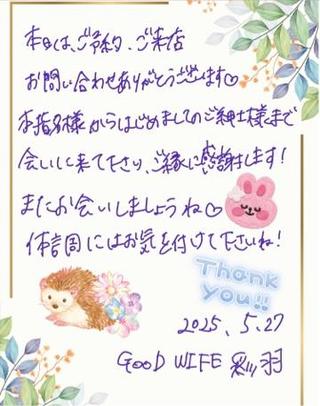 本日は、ご予約、ご来店
お問い合わせありがとうございます♡
本指名様からはじめましてのご紳士様まで
会いに来て下さり、ご縁に感謝します!
またお会いしましょうね♡
体調にはお気を付けて下さいね!
Thank
you!!
2025.5.27
GOOD WIFE 彩羽